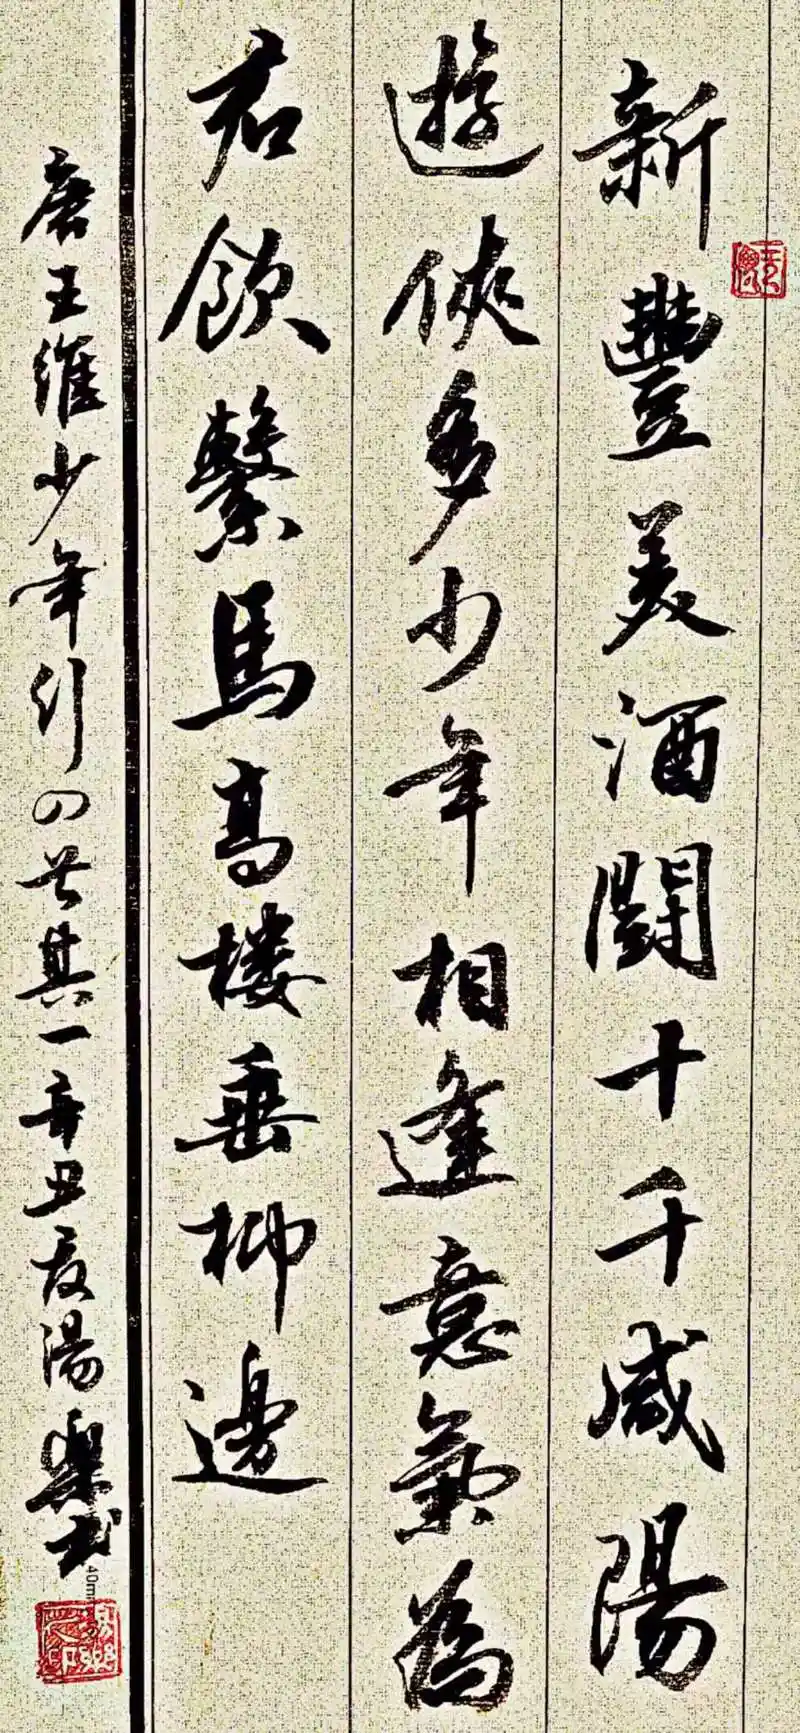 新豐美酒鬪十千咸陽
遊俠多少年相逢意氣為
君飲繫馬高樓垂柳邊
唐王維少年行四首其一辛丑夏湯樂書